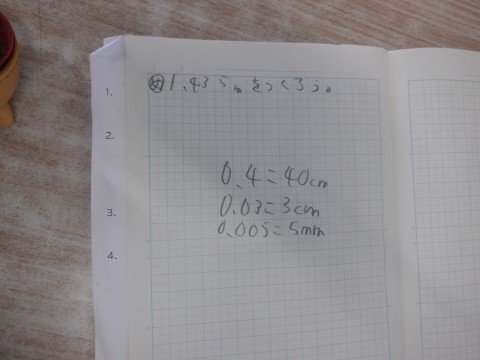 め 1.435mをつくろう。
1.
2.
0.4=40cm
0.03=3cm
3.
0.005=5mm
4.